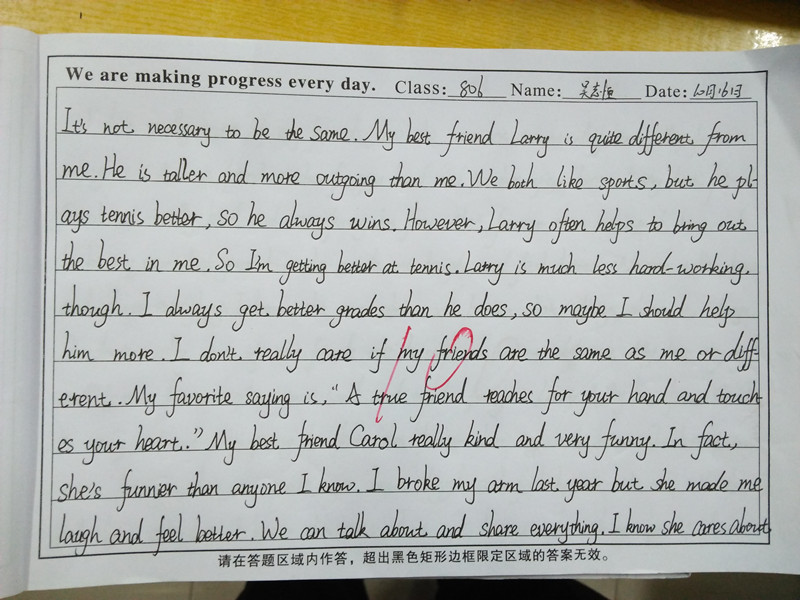 We are making progress every day. Class: 806 Name: 吴志恒 Date: 10月16日
It's not necessary to be the same. My best friend Larry is quite different from
me. He is taller and more outgoing than me. We both like sports, but he pl-
ays tennis better, so he always wins. However, Larry often helps to bring out
the best in me. So I'm getting better at tennis. Larry is much less hard-working.
though. I always get better grades than he does, so maybe I should help
him more. I don't really care if my friends are the same as me or diff-
erent. My favorite saying is, "A true friend reaches for your hand and touch-
es your heart." My best friend Carol really kind and very funny. In fact,
she's funnier than anyone I know. I broke my arm last year but she made me
laugh and feel better. We can talk about and share everything. I know she cares about
请在答题区域内作答，超出黑色矩形边框限定区域的答案无效。
10